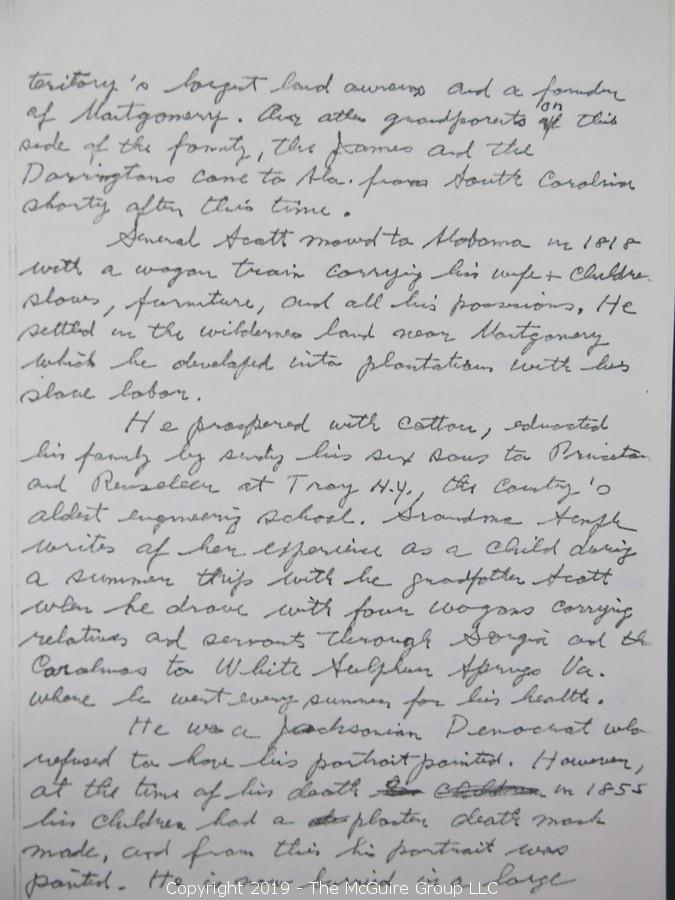 teritory's largest land owners and a founder
of Montgomery. Our other grandparents on this
side of the family, the James and the
Darringtons came to Ala. from South Carolina
shorty after this time.
General Scott moved to Alabama in 1818
with a wagon train carrying his wife + Childre
slaves, furniture, and all his possesions. He
settled in the wilderness land near Montgomery
which he developed into plantations with his
slave labor.
He prospered with cotton, educated
his family by sending his six sons to Princeton
and Rensseleer at Troy N.Y., the country's
oldest engineering school. Grandma
writes of her experience as a child during
a summer trip with he grandfather Scott
when he drove with four wagons carrying
relatives and servants through Gorgia and the
Carolinas to White Sulphur Springs Va.
where he went every summer for his health.
He was a Jacksonian Democrat who
refused to have his portrait painted. However,
at the time of his death in 1855
his children had a plaster death mask
made, and from this his portrait was
painted. He is now burried in a large
Copyright 2019 - The McGuire Group LLC